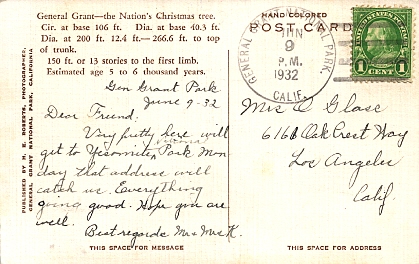 General Grant—the Nation's Christmas tree.
Cir. at base 106 ft. Dia. at base 40.3 ft.
Dia. at 200 ft. 12.4 ft.—266.6 ft. to top
of trunk.
150 ft. or 13 stories to the first limb.
Estimated age 5 to 6 thousand years.
PUBLISHED BY H. E. ROBERTS, PHOTOGRAPHER,
GENERAL GRANT NATIONAL PARK, CALIFORNIA
Gen Grant Park
June 9-32
Dear Friend:
Very pretty here will
get to Yosomites Park Mon
day that address will
catch us. Everything
going good. Hope you are
well.
Best regards Mr & Mrs K.
THIS SPACE FOR MESSAGE
HAND COLORED
POST CARD
GENERAL GRANT NATIONAL PARK,
JUN
9
P.M.
1932
CALIF.
1 CENT 1
Mrs O Glase
6160 Oak Crest Way
Los Angeles
Calif.
THIS SPACE FOR ADDRESS